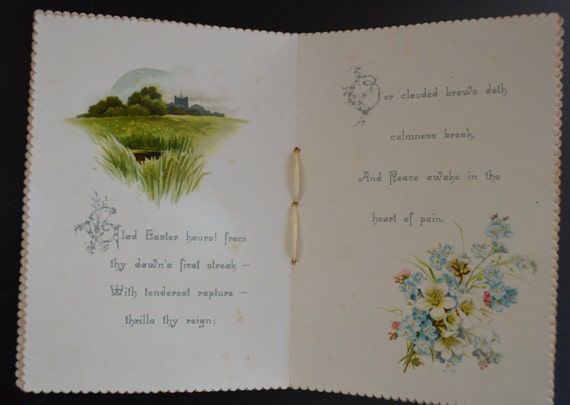 Glad Easter hours! from
thy dawn's first streak —
With tenderest rapture —
thrills thy reign;
O'er clouded brows doth
calmness break,
And Peace awake in the
heart of pain.